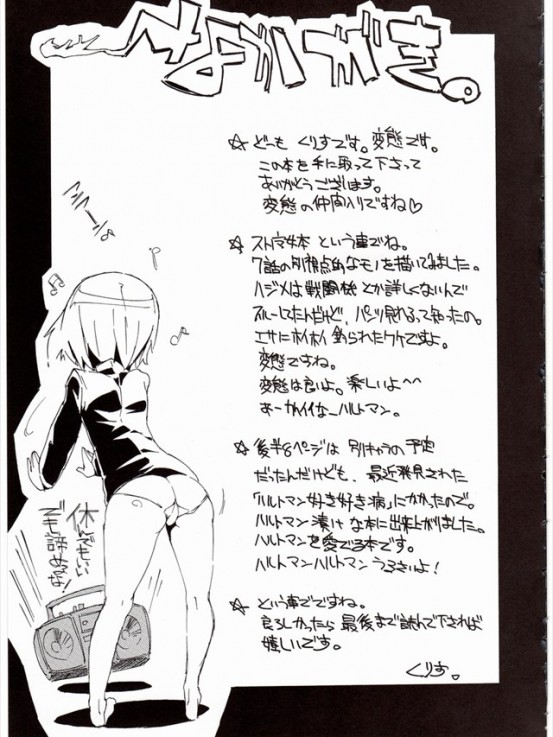 まえがき。
☆ どーも くりすです。変態です。
この本を手に取って下さって
ありがとうございます。
変態の仲間入りですね♡
☆ ストマ本 という事でね。
7話の別視点的なモノを描いてみました。
ハジメは戦闘機とか詳しくないんで
スルーしてたんだけど、パンツ見れるって知ったの。
エサにホイホイ釣られたワケですよ。
変態ですね。
変態は良いよ。楽しいよ^^
あーかわイイなーハルトマン。
☆ 後半8ページは 別キャラの予定
だったんだけども、最近発見された
「ハルトマン好き好き病」にかかったので。
ハルトマン漬け な本に出来上がりました。
ハルトマンを愛でる本です。
ハルトマンハルトマン うるさいよ!
☆ という事でですね。
良ろしかったら 最後まで読んで下されば
嬉しいです。
くりす。
休んでもいい
でも諦めるな!